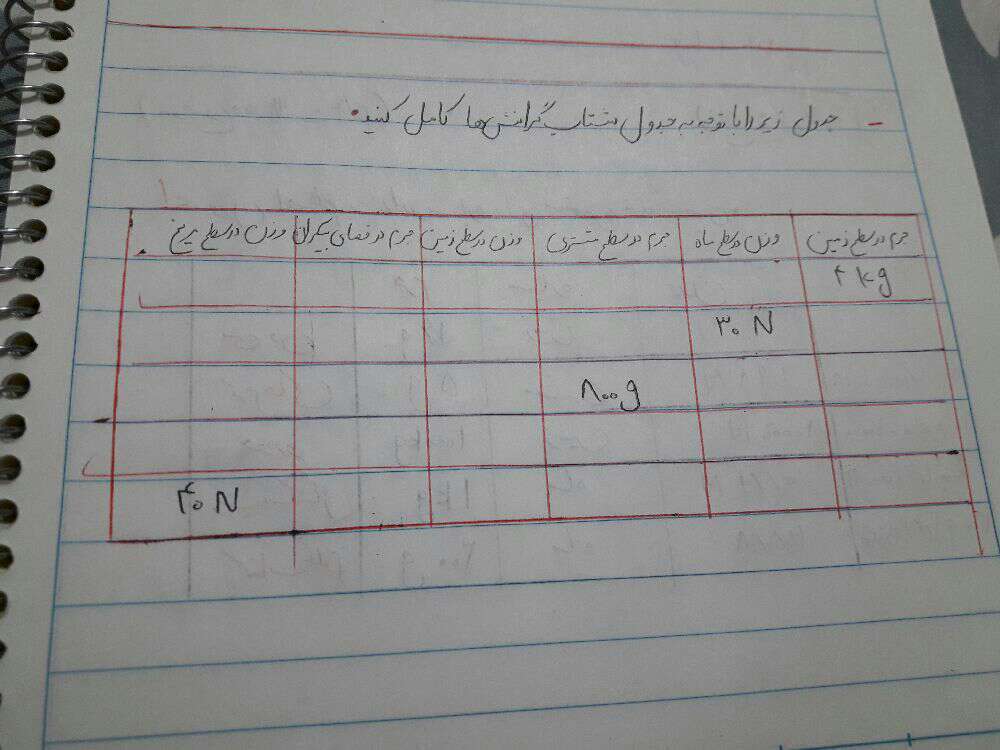 - جدول زیر را با توجه به جدول شتاب گرانش ها کامل کنید.
جرم در سطح زمین وزن در سطح ماه جرم در سطح مشتری وزن در سطح زمین جرم در فضای بیکران وزن در سطح مریخ
۴ kg
۳۰ N
۸۰۰g
۴۰ N